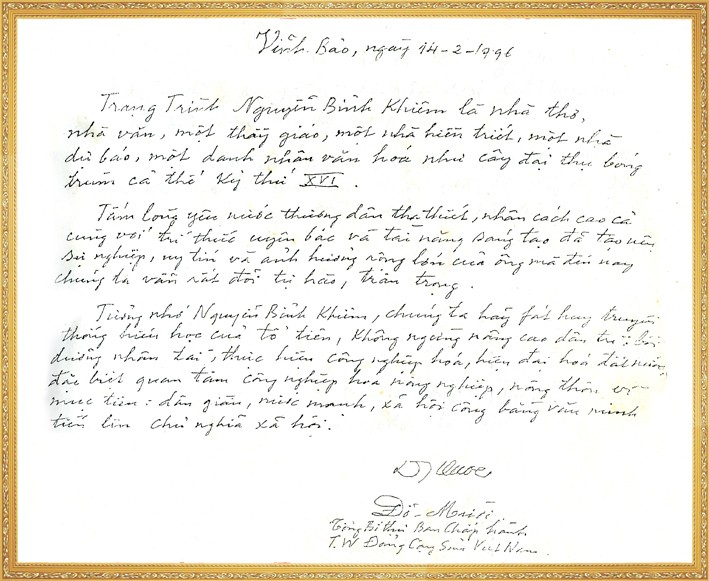 Vĩnh Bảo, ngày 14-2-1996
Trạng Trình Nguyễn Bỉnh Khiêm là nhà thơ,
nhà văn, một thầy giáo, một nhà hiền triết, một nhà
dự báo, một danh nhân văn hoá như cây đại thụ bóng
trùm cả thế kỷ thứ XVI.
Tấm lòng yêu nước thương dân tha thiết, nhân cách cao cả
cùng với tri thức uyên bác và tài năng sáng tạo đã tạo nên
sự nghiệp, uy tín và ảnh hưởng rộng lớn của ông mà đến nay
chúng ta vẫn rất đỗi tự hào, trân trọng.
Tưởng nhớ Nguyễn Bỉnh Khiêm, chúng ta hãy fát huy truyền
thống hiếu học của tổ tiên, không ngừng nâng cao dân trí, bồi
dưỡng nhân tài, thực hiện công nghiệp hoá, hiện đại hoá đất nước,
đặc biệt quan tâm công nghiệp hoá nông nghiệp, nông thôn vì
mục tiêu: dân giàu, nước mạnh, xã hội công bằng văn minh
tiến lên chủ nghĩa xã hội.
Đỗ Mười
Tổng Bí thư Ban Chấp hành
T.W Đảng Cộng Sản Việt Nam